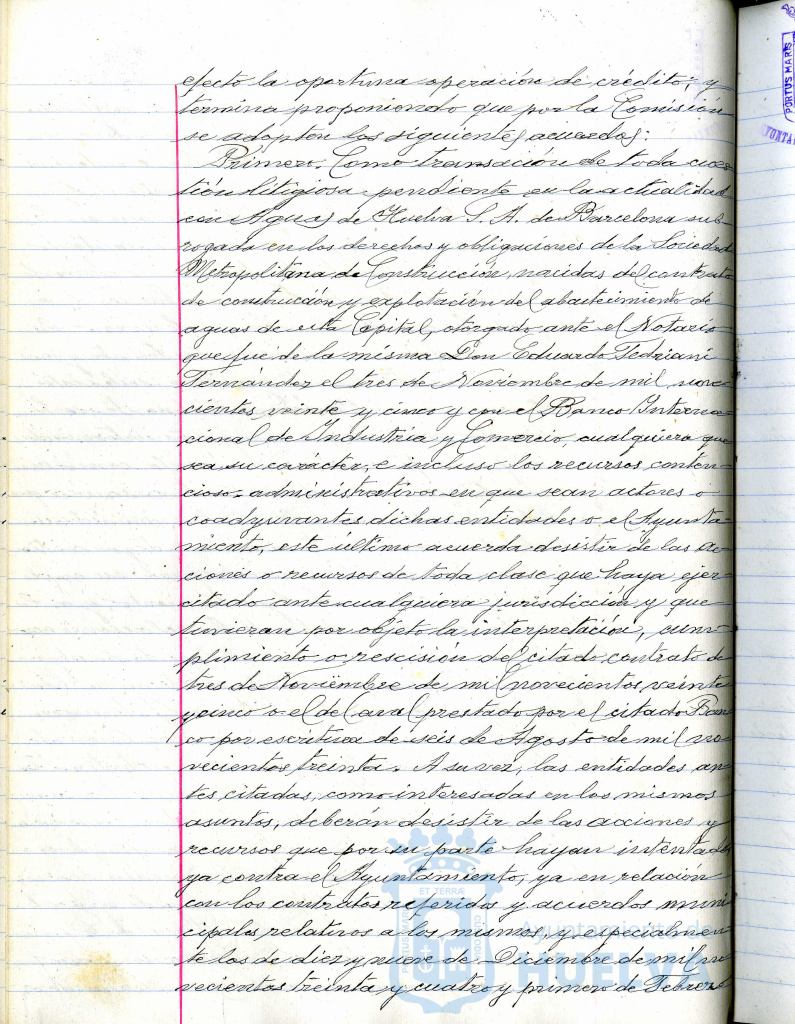 efecto la oportuna operación de crédito; y
termina proponiendo que por la Comisión
se adopten los siguientes acuerdos:
Primero. Como transación de toda cues-
tión litigiosa pendiente en la actualidad
con Aguas de Huelva S. A. de Barcelona sub-
rogada en los derechos y obligaciones de la Sociedad
Metropolitana de Construcción, nacidas del contrato
de construcción y explotación del abastecimiento de
aguas de esta Capital, otorgado ante el Notario
que fué de la misma Don Eduardo Fedriani
Fernández el tres de Noviembre de mil nove-
cientos veinte y cinco y con el Banco Interna-
cional de Industria y Comercio, cualquiera que
sea su carácter, e incluso los recursos conten-
cioso-administrativos en que sean actores o
coadyuvantes dichas entidades o el Ayunta-
miento, este último acuerda desistir de las ac-
ciones o recursos de toda clase que haya ejer-
citado ante cualquiera jurisdicción y que
tuvieran por objeto la interpretación, cum-
plimiento o rescisión del citado contrato de
tres de Noviembre de mil novecientos veinte
y cinco o el de aval prestado por el citado Ban-
co por escritura de seis de Agosto de mil no-
vecientos treinta. A su vez, las entidades an-
tes citadas, como interesadas en los mismos
asuntos, deberán desistir de las acciones y
recursos que por su parte hayan intentado
ya contra el Ayuntamiento, ya en relación
con los contratos referidos y acuerdos muni-
cipales relativos a los mismos, y especialmen-
te los de diez y nueve de Diciembre de mil no-
vecientos treinta y cuatro y primero de Febrero
PORTUS MARIS
ET TERRÆ
Ayuntamiento de
HUELVA